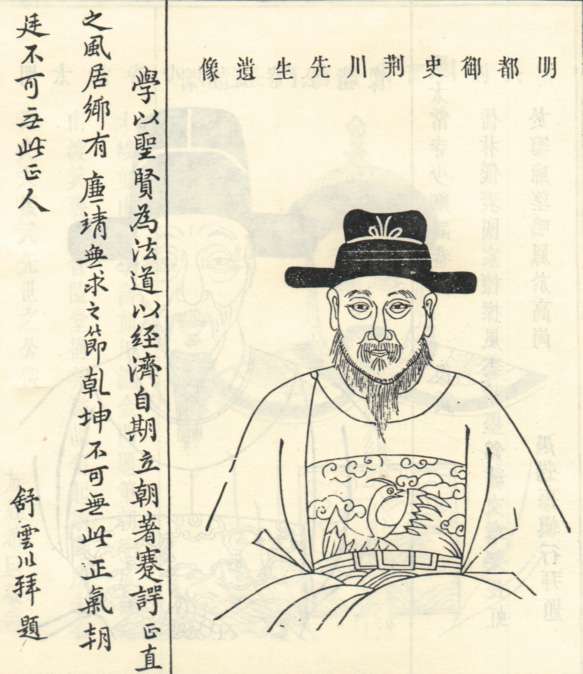 明都御史荆川先生遺像
學以聖賢為法道以經濟自期立朝著蹇諤正直
之風居鄉有廉靖無求之節乾坤不可無此正氣朝
廷不可無此正人
舒雲川拜題